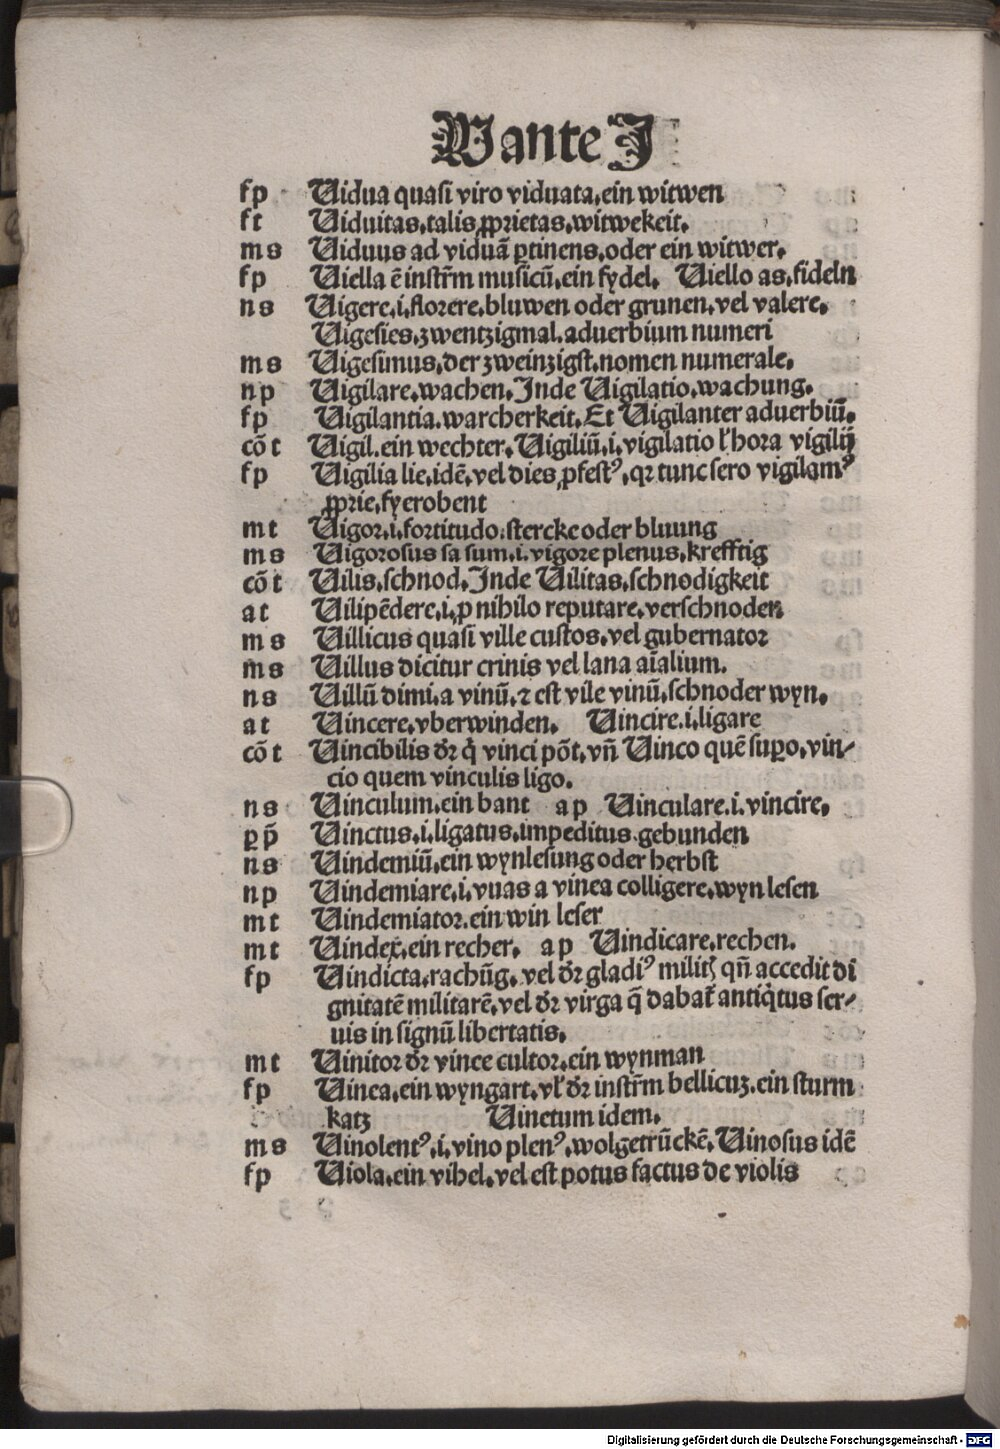 V ante J
fp Uidua quasi viro viduata.ein witwen
ft Uiduitas.talis ꝓprietas.witwekeit.
m s Uiduus ad viduã ꝑtinens.oder ein witwer.
fp Uiella ē instr̄m musicū.ein fydel. Uiello as.fideln
n s Uigere.i.florere.bluwen oder grunen.vel valere.
Uigesies.zwentzigmal.aduerbium numeri
m s Uigesimus.der zweinzigst.nomen numerale.
n p Uigilare.wachen.Inde Uigilatio.wachung.
fp Uigilantia.warcherkeit.Et Uigilanter aduerbiū.
cō t Uigil.ein wechter.Uigiliū.i.vigilatio ł hora vigilij
fp Uigilia lie.idē.vel dies ꝓfestꝰ.qꝛ tunc sero vigilamꝰ
ꝓprie.fyerobent
m t Uigor.i.fortitudo.stercke oder bluung
m s Uigorosus sa sum.i.vigore plenus.krefftig
cō t Uilis.schnod.Inde Uilitas.schnodigkeit
a t Uilipēdere.i.ꝓ nihilo reputare.verschnoden
m s Uillicus quasi ville custos.vel gubernator
m s Uillus dicitur crinis vel lana aīalium.
n s Uillū dimi.a vinū.⁊ est vile vinū.schnoder wyn.
a t Uincere.vberwinden. Uincire.i.ligare
cō t Uincibilis dr̄ q̇ vinci pōt.vñ Uinco quē suꝑo.vin⸗
cio quem vinculis ligo.
n s Uinculum.ein bant a p Uinculare.i.vincire.
ꝑ p̄ Uinctus.i.ligatus.impeditus.gebunden
n s Uindemiū.ein wynlesung oder herbst
n p Uindemiare.i.vuas a vinea colligere.wyn lesen
m t Uindemiator.ein win leser
m t Uindex.ein recher. a p Uindicare.rechen.
fp Uindicta.rachūg.vel dr̄ gladiꝰ militꝭ qñ accedit di
gnitatē militarē.vel dr̄ virga q̄ dabat̄ antiq̇tus ser⸗
uis in signū libertatis.
m t Uinitor dr̄ vinee cultor.ein wynman
fp Uinea.ein wyngart.vł dr̄ instr̄m bellicuꝫ.ein sturm
katz Uinetum idem.
m s Uinolentꝰ.i.vino plenꝰ.wolgetrūckē.Uinosus idē
fp Uiola.ein vihel.vel est potus factus de violis
Digitalisierung gefördert durch die Deutsche Forschungsgemeinschaft - DFG